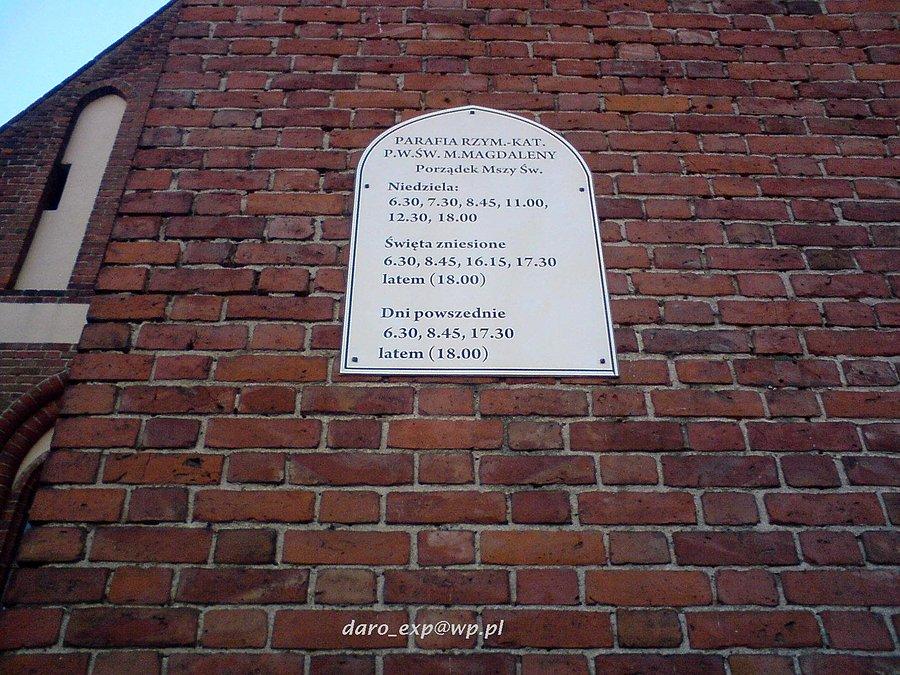 PARAFIA RZYM.-KAT.
P.W.ŚW. M.MAGDALENY
Porządek Mszy Św.
Niedziela:
6.30, 7.30, 8.45, 11.00,
12.30, 18.00
Święta zniesione
6.30, 8.45, 16.15, 17.30
latem (18.00)
Dni powszednie
6.30, 8.45, 17.30
latem (18.00)
daro_exp@wp.pl